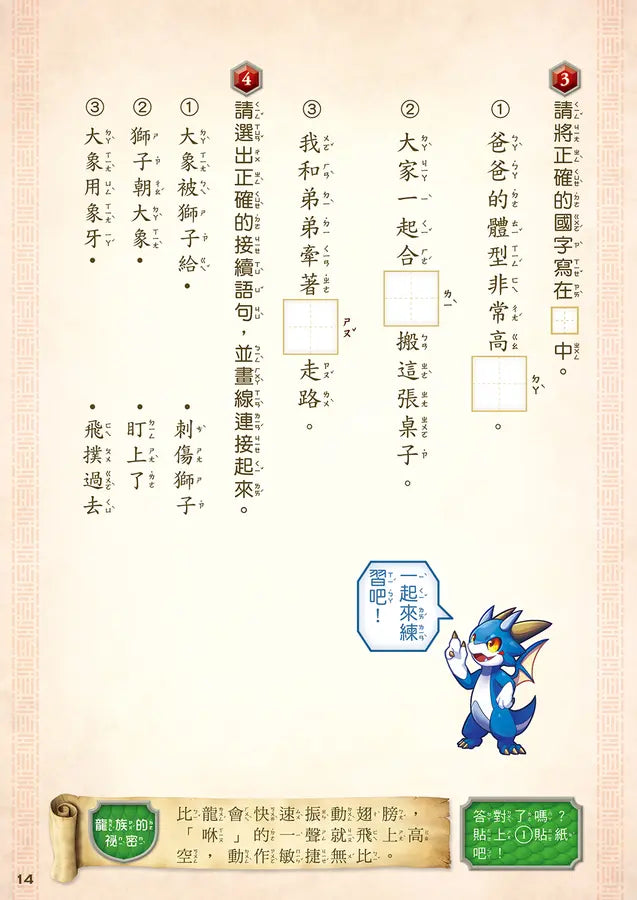 3
請將正確的國字寫在□中。
① 爸爸的體型非常高□ㄉㄚˋ。
② 大家一起合□ㄌㄧˋ搬這張桌子。
③ 我和弟弟牽著□ㄕㄡˇ走路。
4
請選出正確的接續語句，並畫線連接起來。
① 大象被獅子給•
② 獅子朝大象•
③ 大象用象牙•
•刺傷獅子
•盯上了
•飛撲過去
一起來練
習吧！
龍族的
祕密
比龍會快速振動翅膀，
「咻」的一聲就飛上高
空，動作敏捷無比。
答對了嗎？
貼上①貼紙
吧！
14